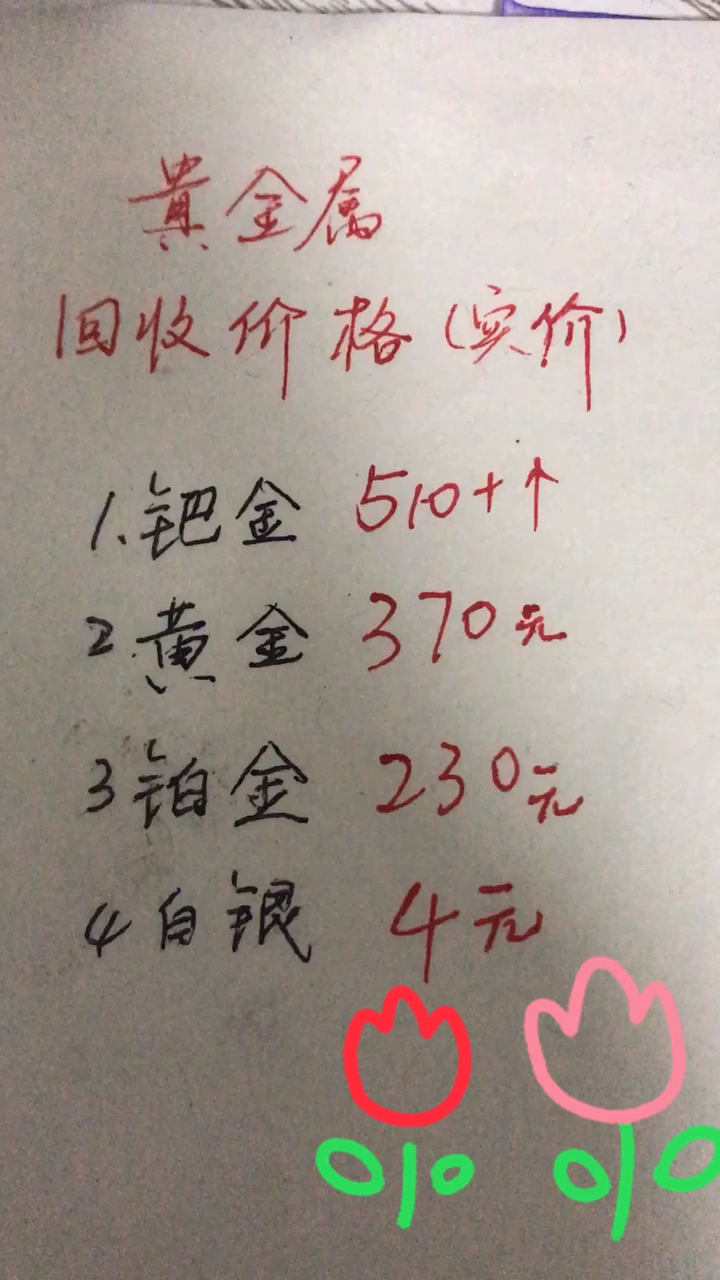 貴金属
回收价格(实价)
1.钯金 510+↑
2 黄金 370元
3 铂金 230元
4 白银 4元